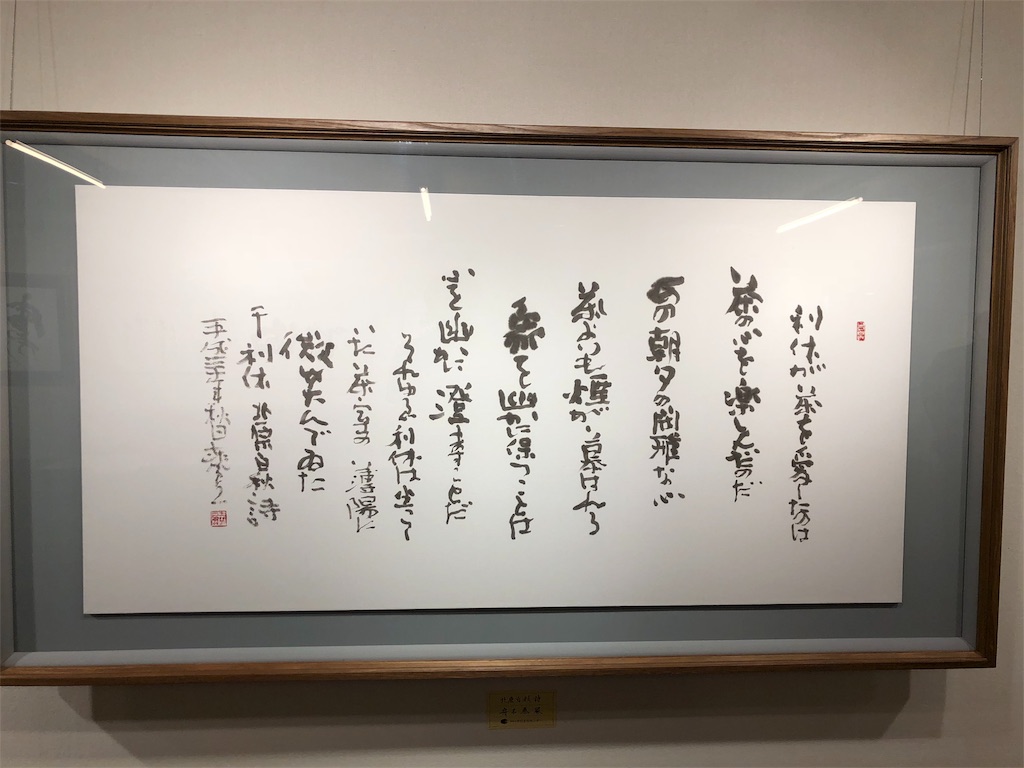 利休が茶を愛したのは
茶の心を楽しんだのだ
あの朝夕の閑雅な心
茶よりも が慕はれる
象を幽かに保つことは
心を幽かに澄ますことだ
それゆゑ利休は坐って
いた 茶室の 薄陽に
微笑んでゐた
千利休 北原白秋 詩
秋日
北原白秋詩